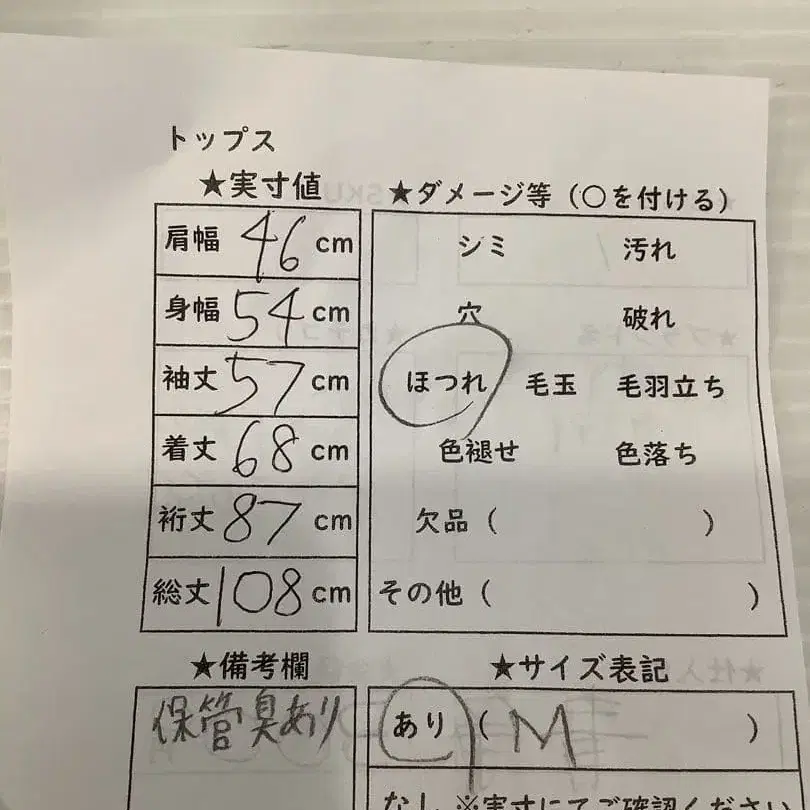 トップス
★実寸値
肩幅 46 cm
身幅 54 cm
袖丈 57 cm
着丈 68 cm
裄丈 87 cm
総丈 108 cm
★ダメージ等（○を付ける）
シミ 汚れ
穴 破れ
ほつれ 毛玉 毛羽立ち
色褪せ 色落ち
欠品（ ）
その他（ ）
★備考欄
保管臭あり
★サイズ表記
あり（ M ）
なし ※実寸にてご確認ください